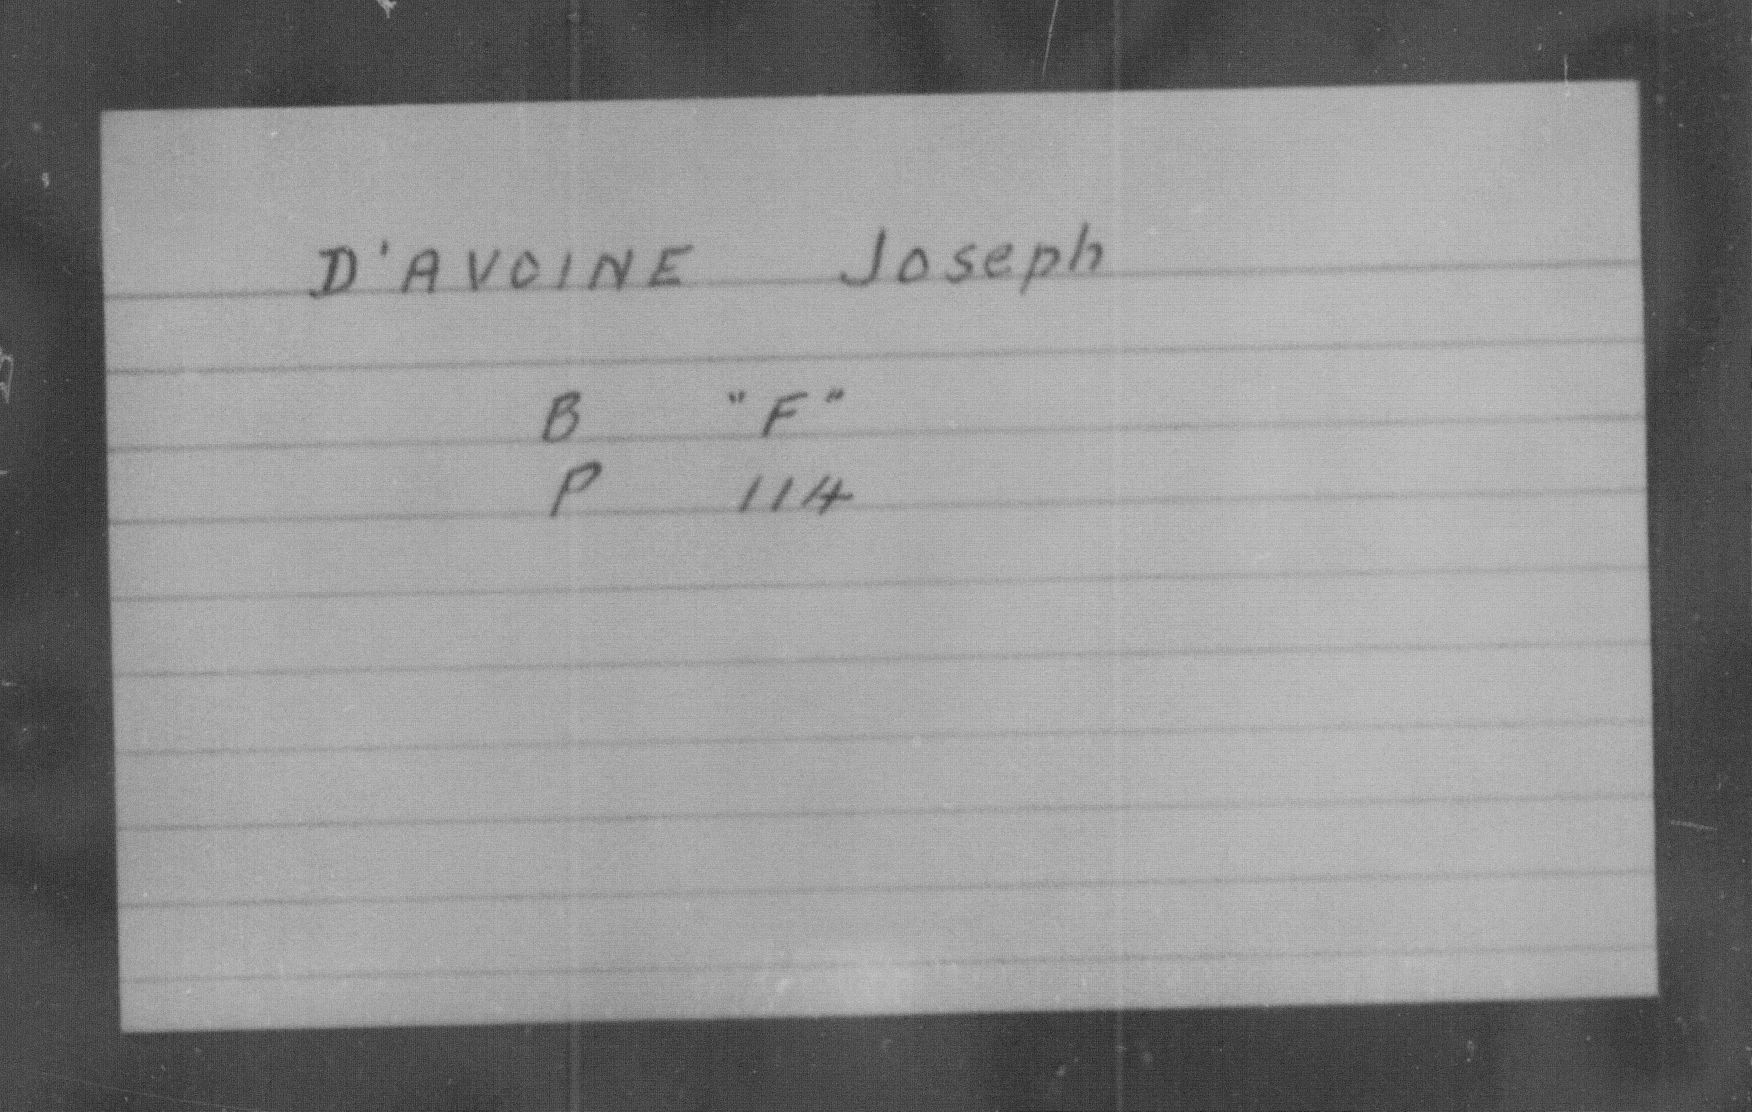 D'AVOINE Joseph
B "F"
P 114